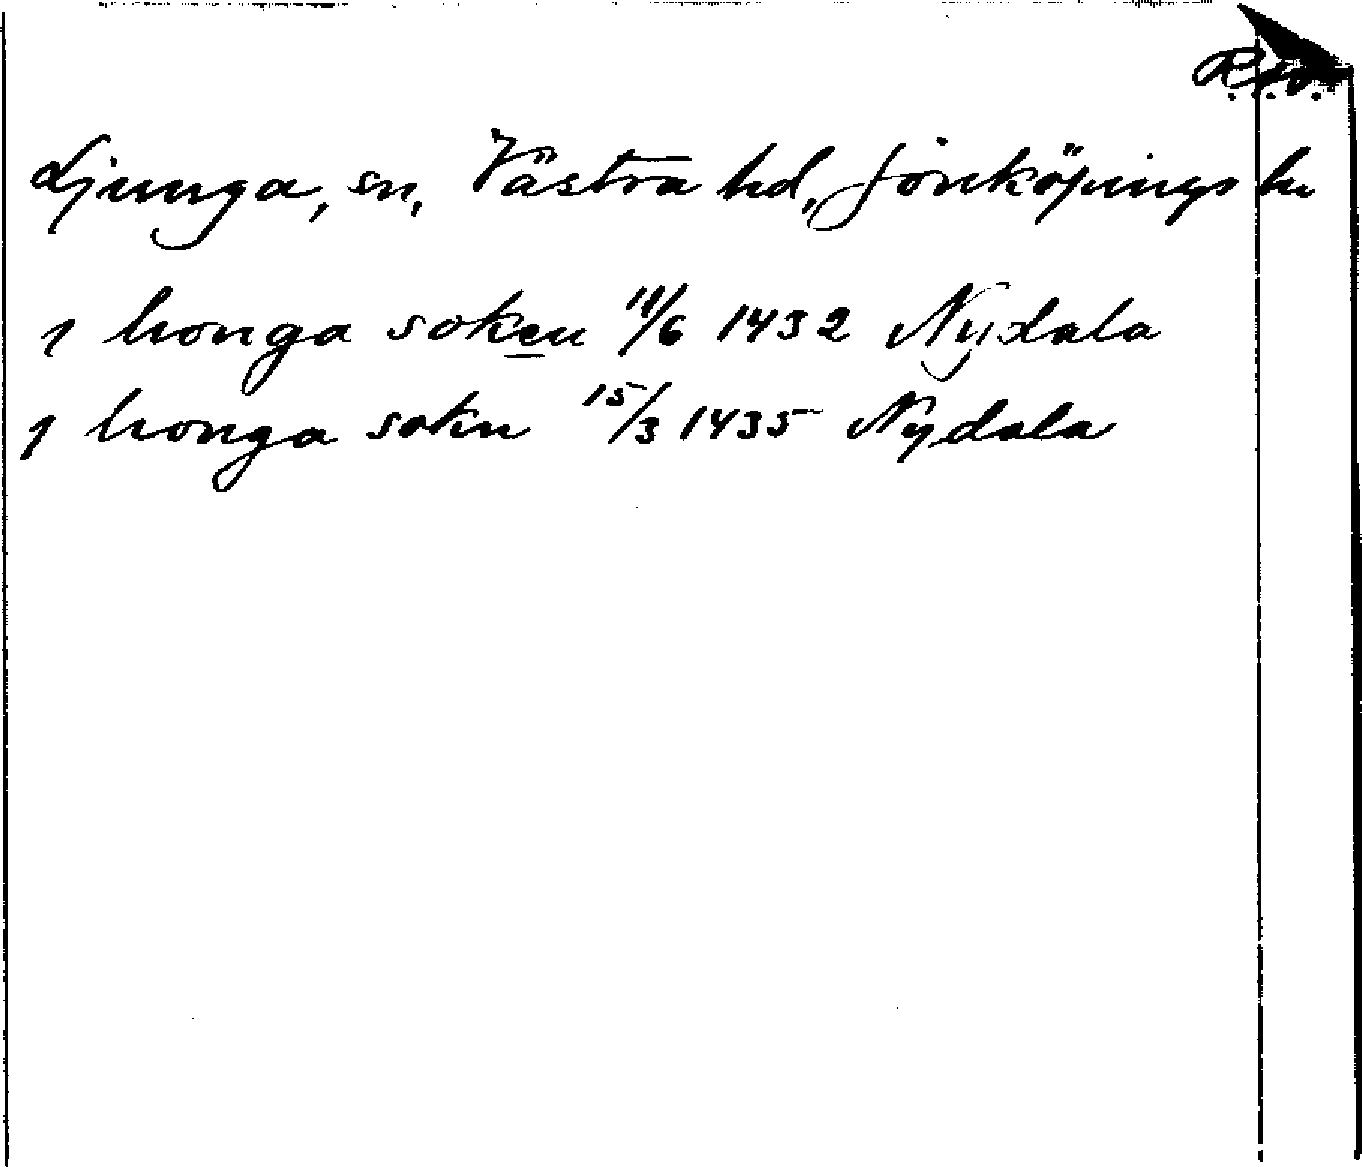 Ljunga, sn, Västra hd, Jönköpings ln
1 lionga soken 11/6 1432 Nydala
1 lionga sokn 15/3 1435 Nydala